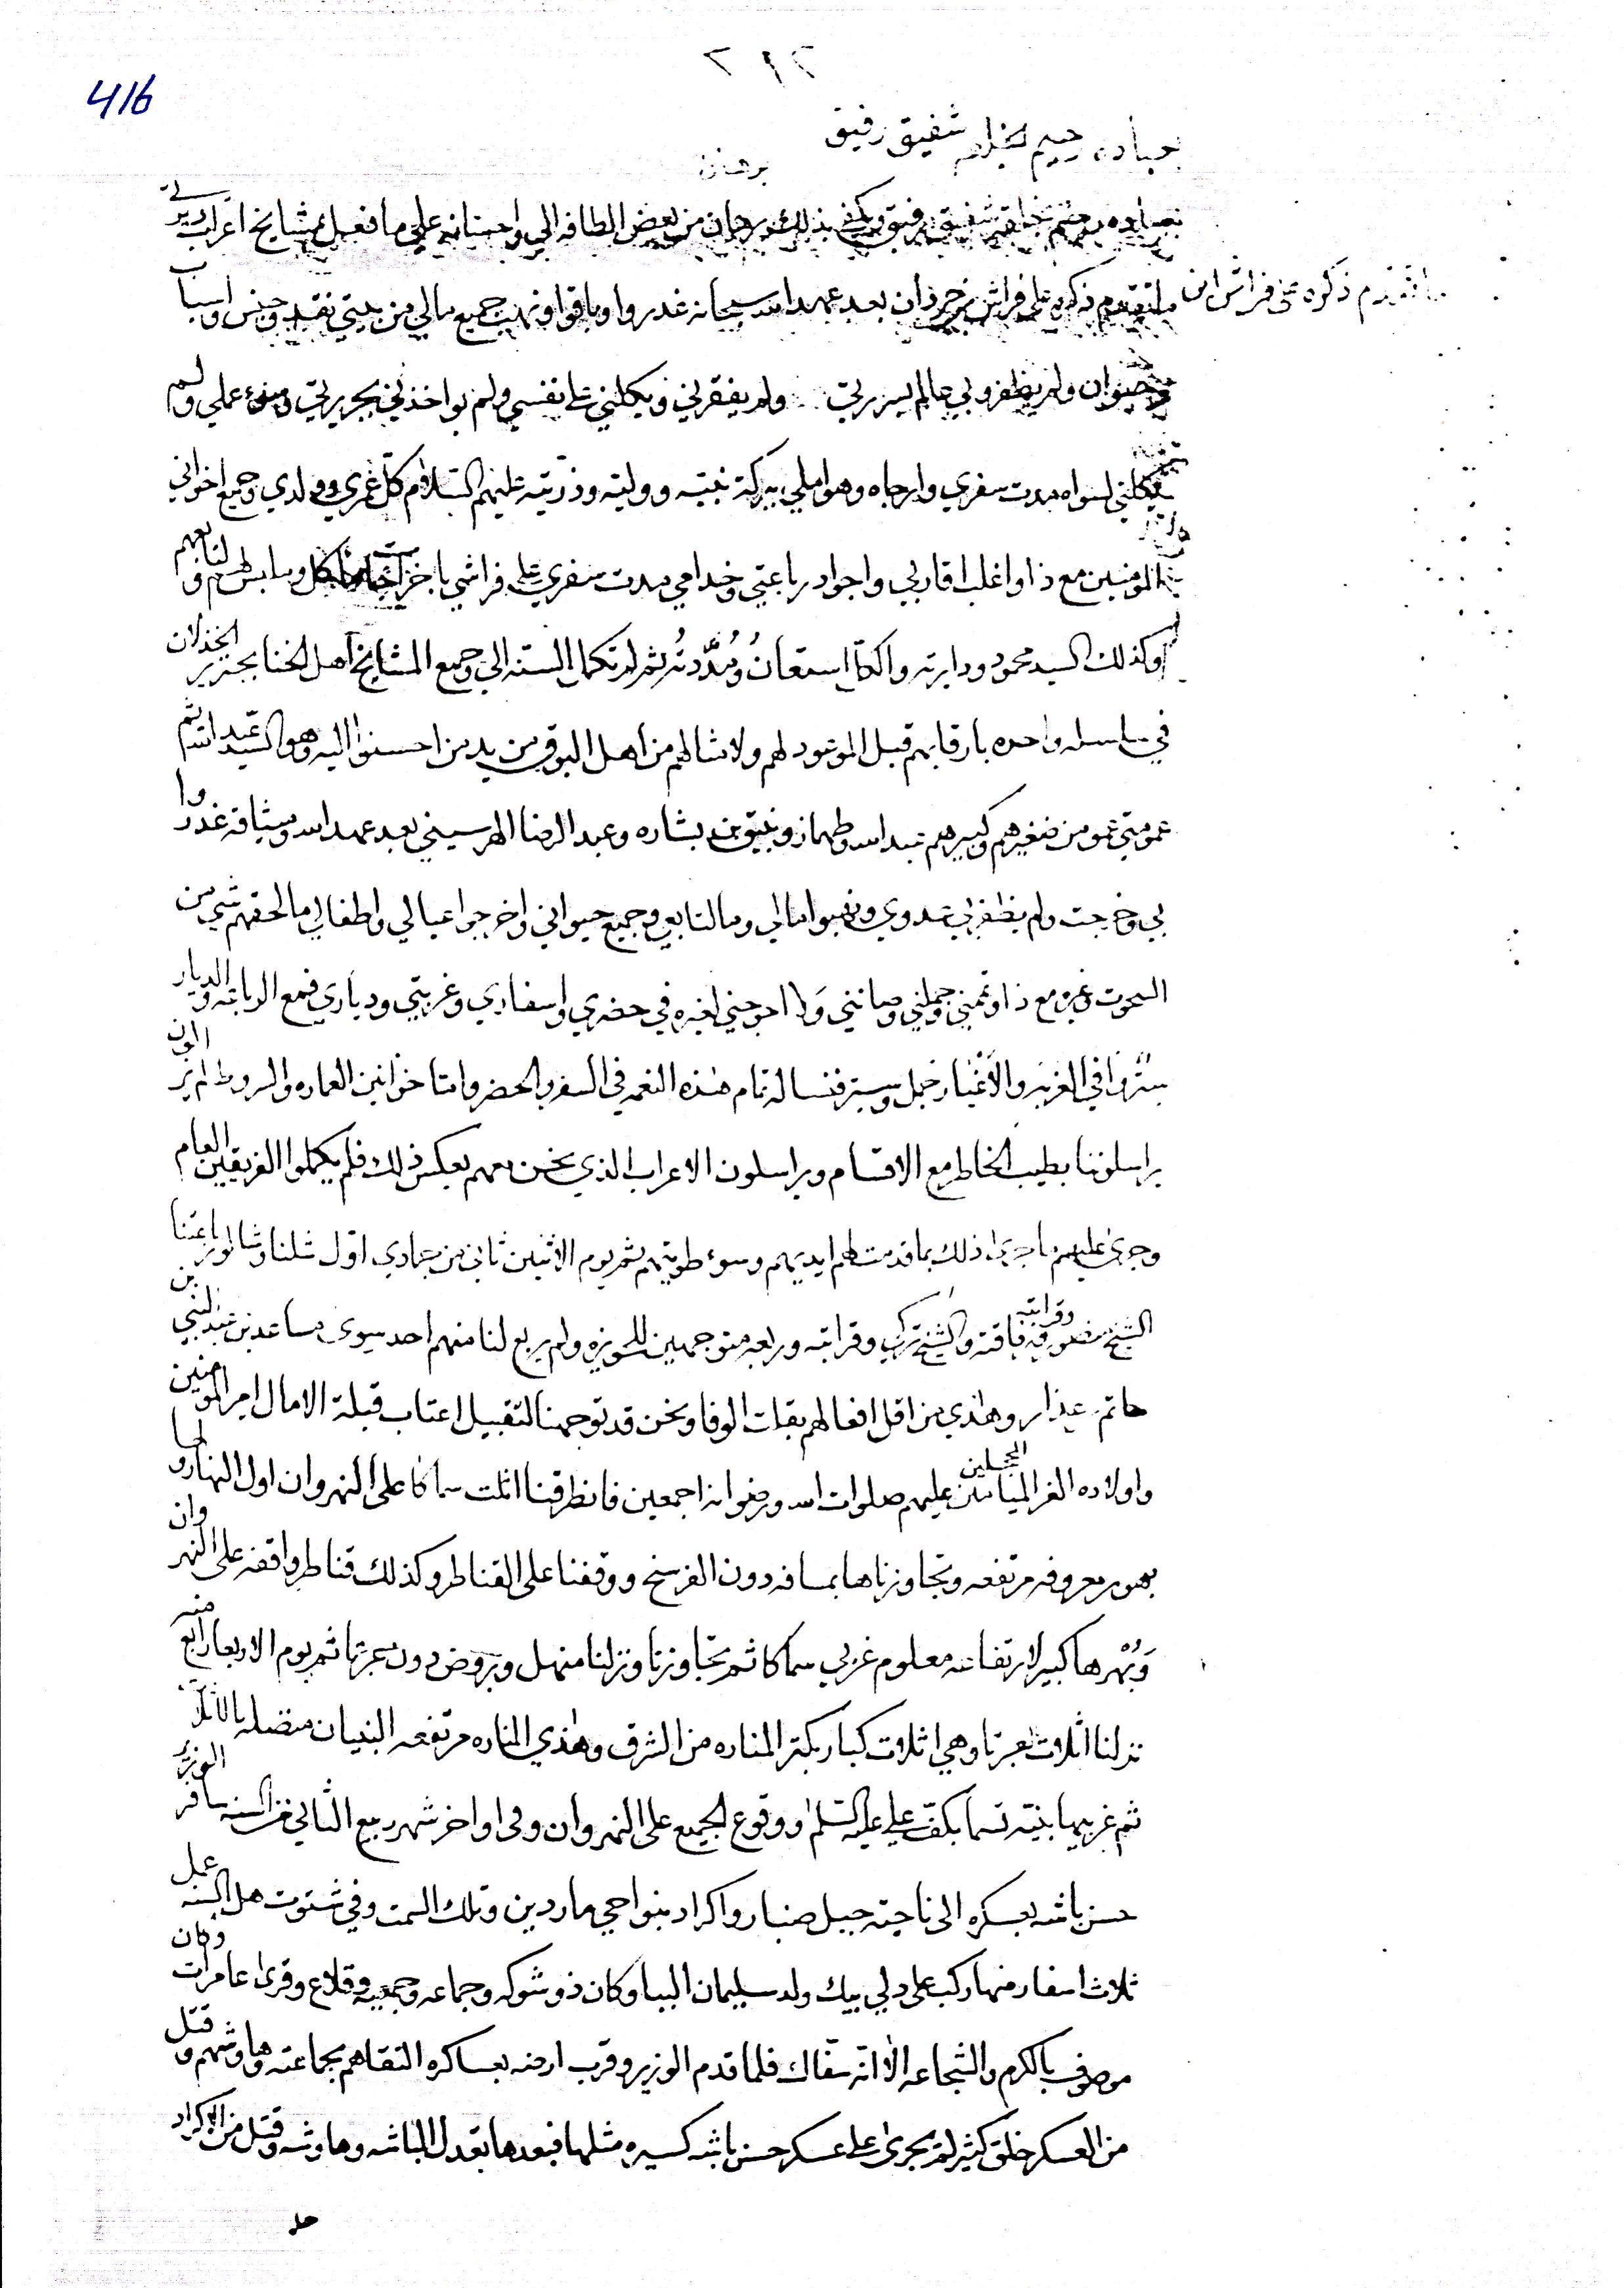 ٢١٢
416
بعباده رحيم بخلقه شفيق رفيق
برهان
بعباده رحيم بخلقه شفيق رفيق ويكفي بذلك برهان من بعض الطافه الي واحسانه علي ما فعل بي مشايخ اعراب
ما تقدم ذكره على فراش ابن
ما تقدم ذكره على فراش بن خير ذان بعد عهد الله سبحانه غدروا وباقوا ونهب جميع مالي من بيتي نقد وجنس واسباب
وحيوان ولم يظفروا بي عالم سريرتي ولم يفقرني ويكلني على نفسي ولم يواخذني بجريرتي وسوء عملي ولم
يكلني لسواه مدت سفري وارجاه وهو املي ببركة نبيه ووليه وذريته عليهم السلام كل عمري وولدي وجميع اخواني
المومنين مع ذا واغلب اقاربي واجواد رباعتي وخدامي مدت سفري على فراشي باخر ماكل وملبس لهم ولتابعهم
وكذلك السيد محمود ودايرته والكل استعان ومددته ثم لم تكمل السنه الي وجميع المشايخ اهل الخنا بجنزير الخذلان
في سلسله واحده بارقابهم قبل الموعود لهم ولامثالهم من اهل البوق من يد من احسنوا اليه وهو السيد عبد الله ثم
عمومتي عمو من صغيرهم وكبيرهم عبد الله وطهماز ونبتي بن بشاره وعبد الرضا الهرسيني بعد عهد الله وميثاقه غدروا
بي وخرجت ولم يظفر بي عدوي ونهبوا مالي ومال تابعي وجميع حيواني واخرجوا عيالي واطفالي ما لحقهم شي من
السحوت وغيره مع ذا وعمني جملني وصانني ولا احوجني لغيره في حضري واسفاري وغربتي ودياري فمع الرباعه والديار
ستر وفي الغربه والاغيار خجل وستر فنساله تمام هذه النعمه في السفر والحضر وامتا خوانين العماره والسروط لم يزالون
يراسلوننا بطيب الخاطر مع الاقسام ويراسلون الاعراب الذي نحن معهم بعكس ذلك فلم يكملوا الفريقين العام
وجرى عليهم ما جرى ذلك بما قدمت لهم ايديهم وسوء طويتهم ثم يوم الاثنين ثاني من جمادي اول شلنا وشالو رباعتنا
الشيخ منصور وقرابته باقته والشيخ تركي وقرابته وربعه متوجهين للحويزه ولم يربع لنا منهم احد سوى مساعد بن عبد النبي بن
حاتم عيذار وهذي من اقل افعالهم بقات الوفا ونحن قد توجهنا لتقبيل اعتاب قبلة الامال امير المومنين
واولاده الغر الميامين المبجلين عليهم صلوات الله ورضوانه اجمعين فانطرقنا اثلت سماكا على النهروان اول النهار ولها
بهور معروفه مرتفعه وتجاوزناها بمسافه دون الفرسخ ووقفنا على القناطر وكذلك قناطر واقفه على النهروان
وبهرها كبير لارتفاعه معلوم غربي سماكا ثم تجاوزنا ونزلنا منهل وبروض دون عجرتا ثم يوم الاربعا رابع منه
نزلنا اثلاث بعجرتا وهي اثلاث كبار بكتر المناره من الشرق وهذي المناره مرتفعه البنيان متصله بالاثلاث
ثم غربيها بنيته تسما بكف علي عليه السلم ووقوع الجميع على النهروان وفى اواخر شهر ربيع الثاني من السنه سافر الوزير
حسن باشه بعسكره الى ناحية جبل صنبار واكراد بنواحي ماردين وتلك السمت وفي شتوت هل السنه عمل
ثلاث اسفار منها ركب على دلي بيك ولد سليمان الببا وكان ذو شوكه وجماعه وجمعيه وقلاع وقرى عامرات وكان
موصوف بالكرم والشجاعه الا انه سفاك فلما قدم الوزير وقرب ارضه بعساكره التقاهم بجماعته وهاوشهم وقتل
من العسكر خلق كثير لم يجرى على عسكر حسن باشه كسيره مثلها فبعدها بقدل الباشه وهاوشه وقتل من الاكراد